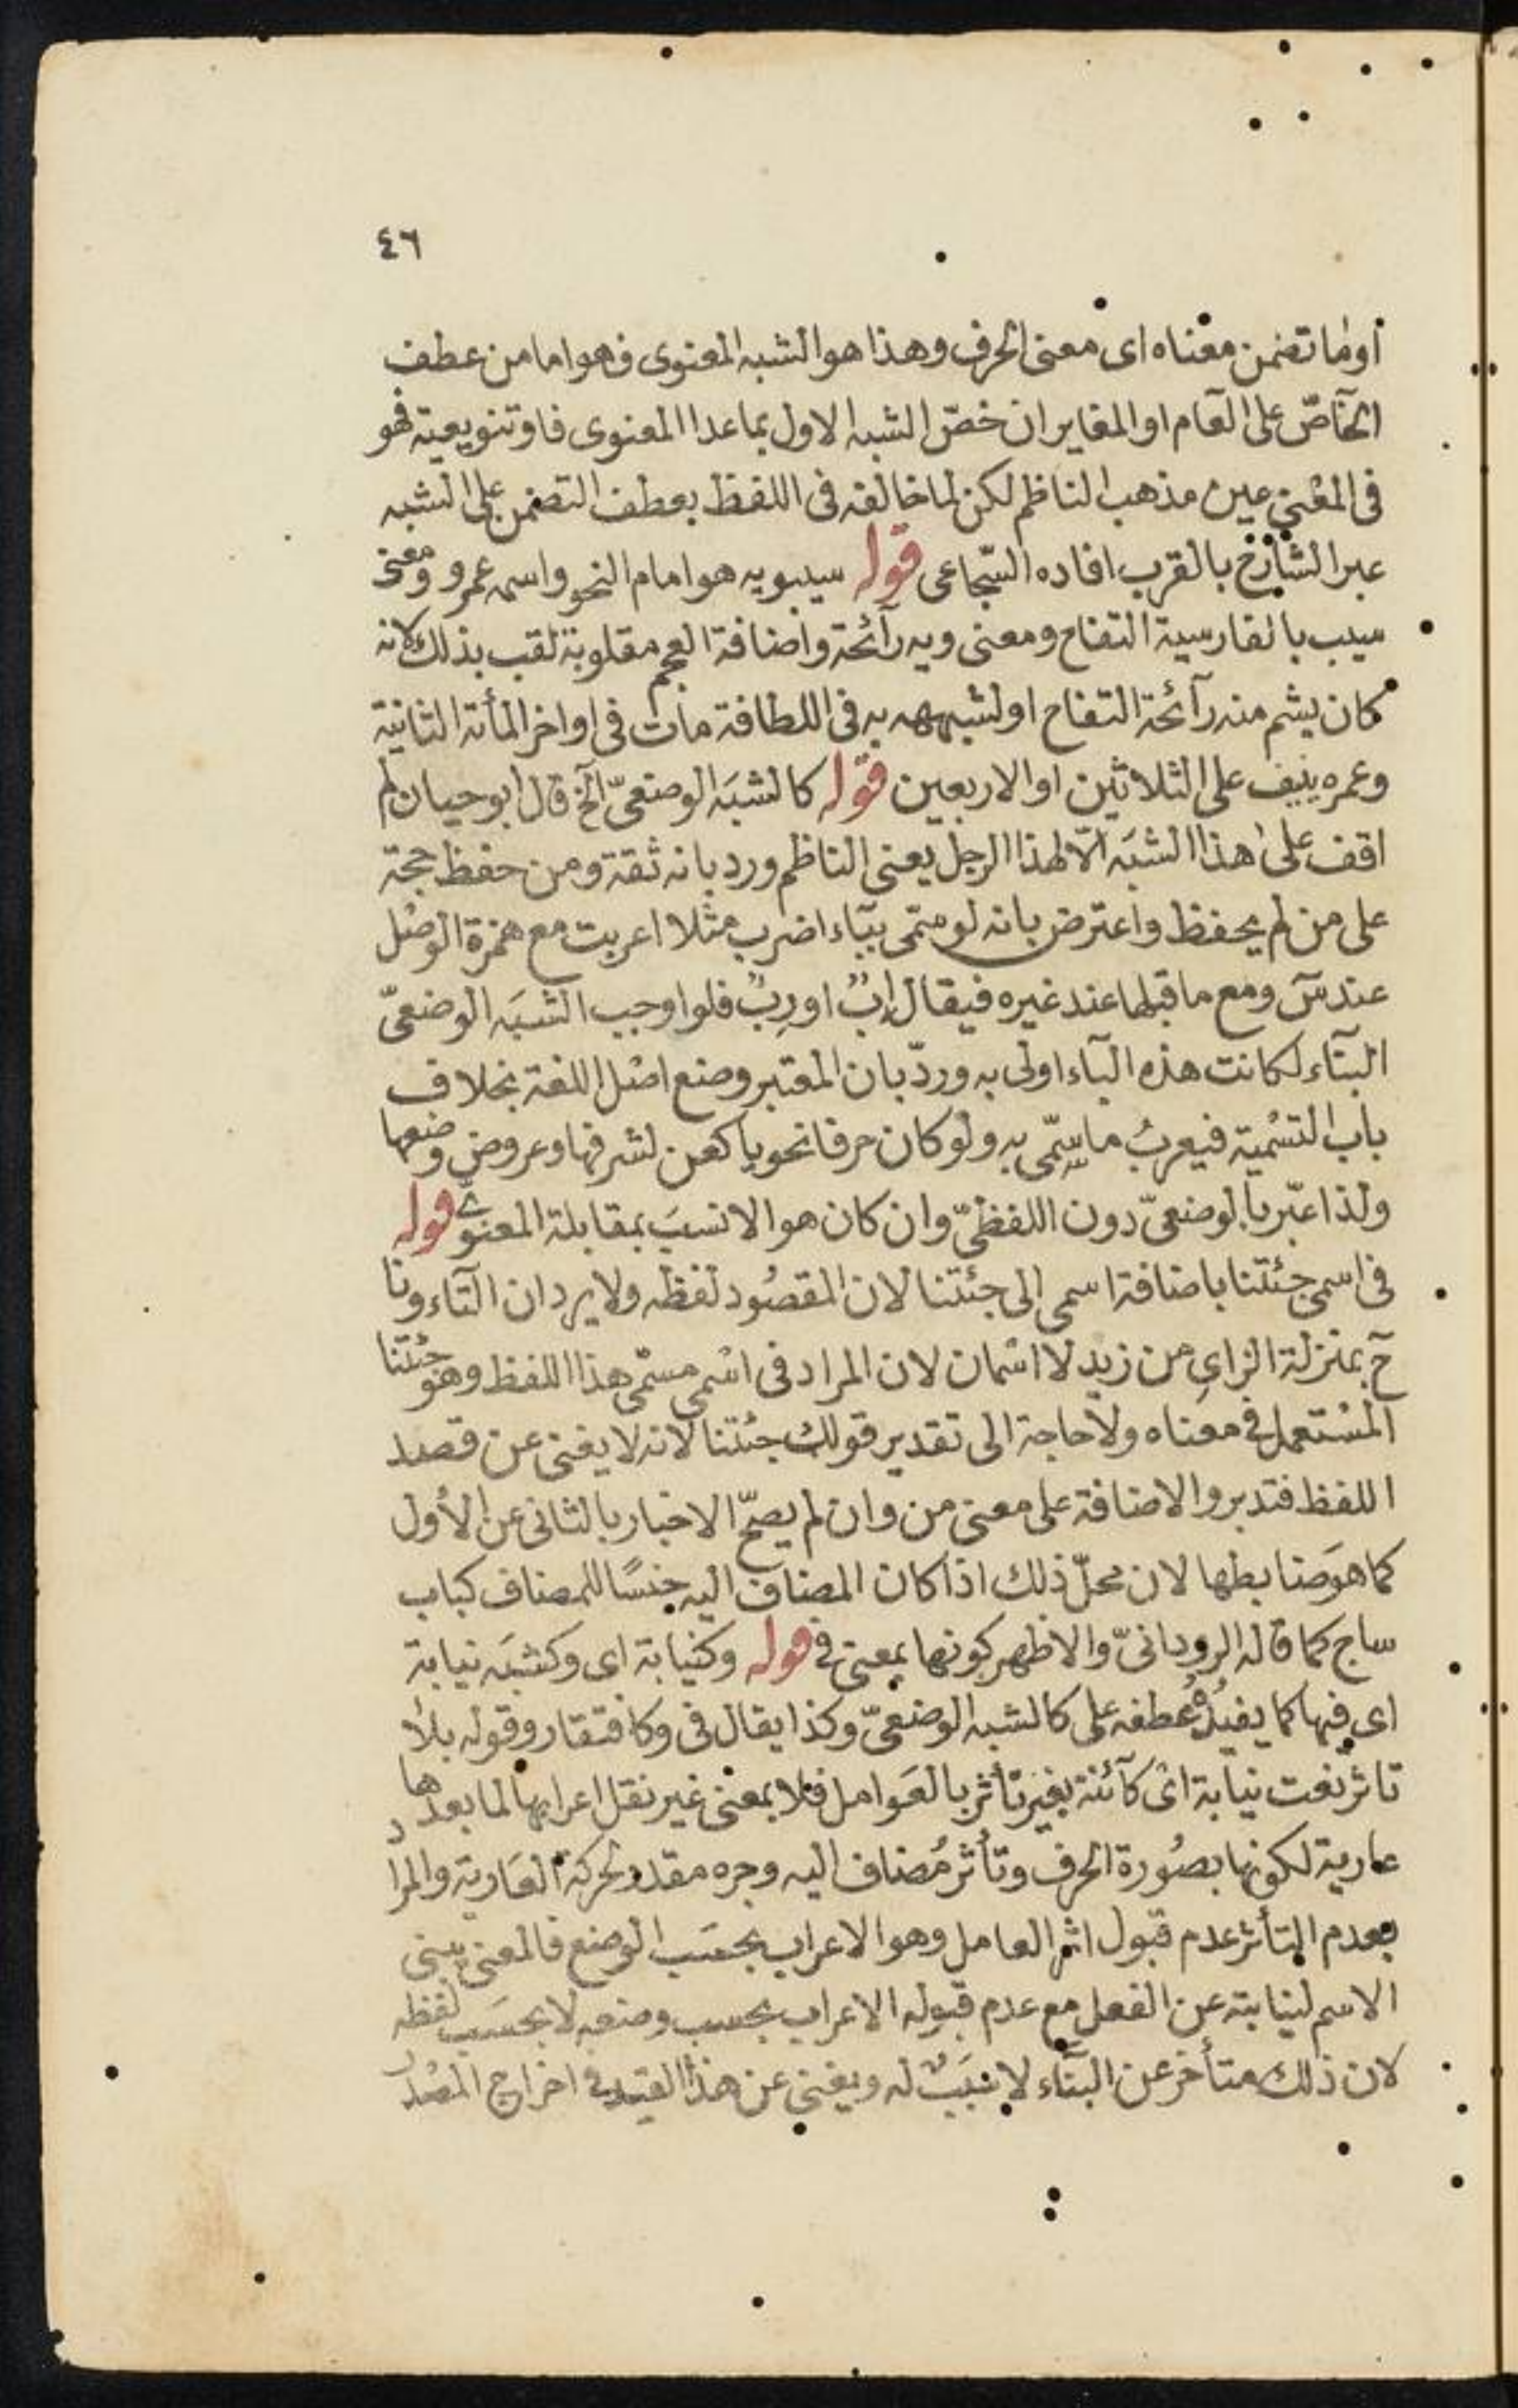 ٤٦
او ما تضمن معناه اى معنى الحرف وهذا هو الشبه المعنوى فهو اما من عطف
الخآصّ على العام او المغاير ان خصّ الشبه الاول بما عدا المعنوى فاو تنويعية فهو
فى المعنى عين مذهب الناظم لكن لما خالفه فى اللفظ بعطف التضمن على الشبه
عبر الشارح بالقرب افاده السّجاعى قوله سيبويه هو امام النحو واسمه عمرو ومعنى
سيب بالفارسية التفاح ومعنى ويه رآئحة واضافة العجم مقلوبة لقب بذلك لانه
كان يشم منه رآئحة التفاح او لشبهه به فى اللطافة مات فى اواخر المأئة الثانية
وعمره ينيف على الثلاثين او الاربعين قوله كالشبَه الوضعىّ الخ قال ابو حيان لم
اقف على هذا الشبَه الّا لهذا الرجل يعنى الناظم ورد بانه ثقة ومن حفظ حجة
على من لم يحفظ واعترض بانه لو سمّى ببآء اضرب مثلا اعربت مع همزة الوصل
عند سٓ ومع ما قبلها عند غيره فيقال اِبٌ او رِبٌ فلو اوجب الشبَه الوضعىّ
البنآء لكانت هذه البآء اولى به وردّ بان المعتبر وضع اصل اللغة بخلاف
باب التسْمية فيعربُ ما سمّى به ولو كان حرفا نحويا كعن لشرفها وعروض وضعها
ولذا عبّر بالوضعىّ دون اللفظىّ وان كان هو الانسبَ بمقابلة المعنوىّ قوله
فى اسمى جئتنا باضافة اسمى الى جئتنا لان المقصُود لفظه ولا يرد ان التآء ونا
حٓ بمنزلة الزاى من زيد لا اسْمان لان المراد فى اسْمى مسمّى هذا اللفظ وهو جئتنا
المسْتعمل فى معناه ولا حاجة الى تقدير قولك جئتنا لانه لا يغنى عن قصد
اللفظ فتدبر والاضافة على معنى من وان لم يصحّ الاخبار بالثانى عن الأول
كما هو ضابطها لان محلّ ذلك اذا كان المضاف اليه جنسًا للمضاف كباب
ساج كما قاله الرودانىّ والاظهر كونها بمعنى فى قوله وكنيابة اى وكشبَه نيابة
اى فيها كما يفيدُهُ عطفه على كالشبه الوضعىّ وكذا يقال فى وكافتقار وقوله بلا
تاثر نعت نيابة اى كآئنة بغير تأثر بالعَوامل فلا بمعنى غير نقل اعرابها لما بعدها
عارية لكونها بصُورة الحرف وتأثر مُضاف اليه وجره مقدر لحركة العَارية والمراد
بعدم التأثر عدم قبول اثر العامل وهو الاعراب بحسَب الوضع فالمعنى يبنى
الاسم لنيابته عن الفعل مع عدم قبوله الاعراب بحسب وضعه لا بحسَب لفظه
لان ذلك متأخر عن البنآء لا سَبَبٌ له ويغنى عن هذا القيد فى اخراج المصْدر